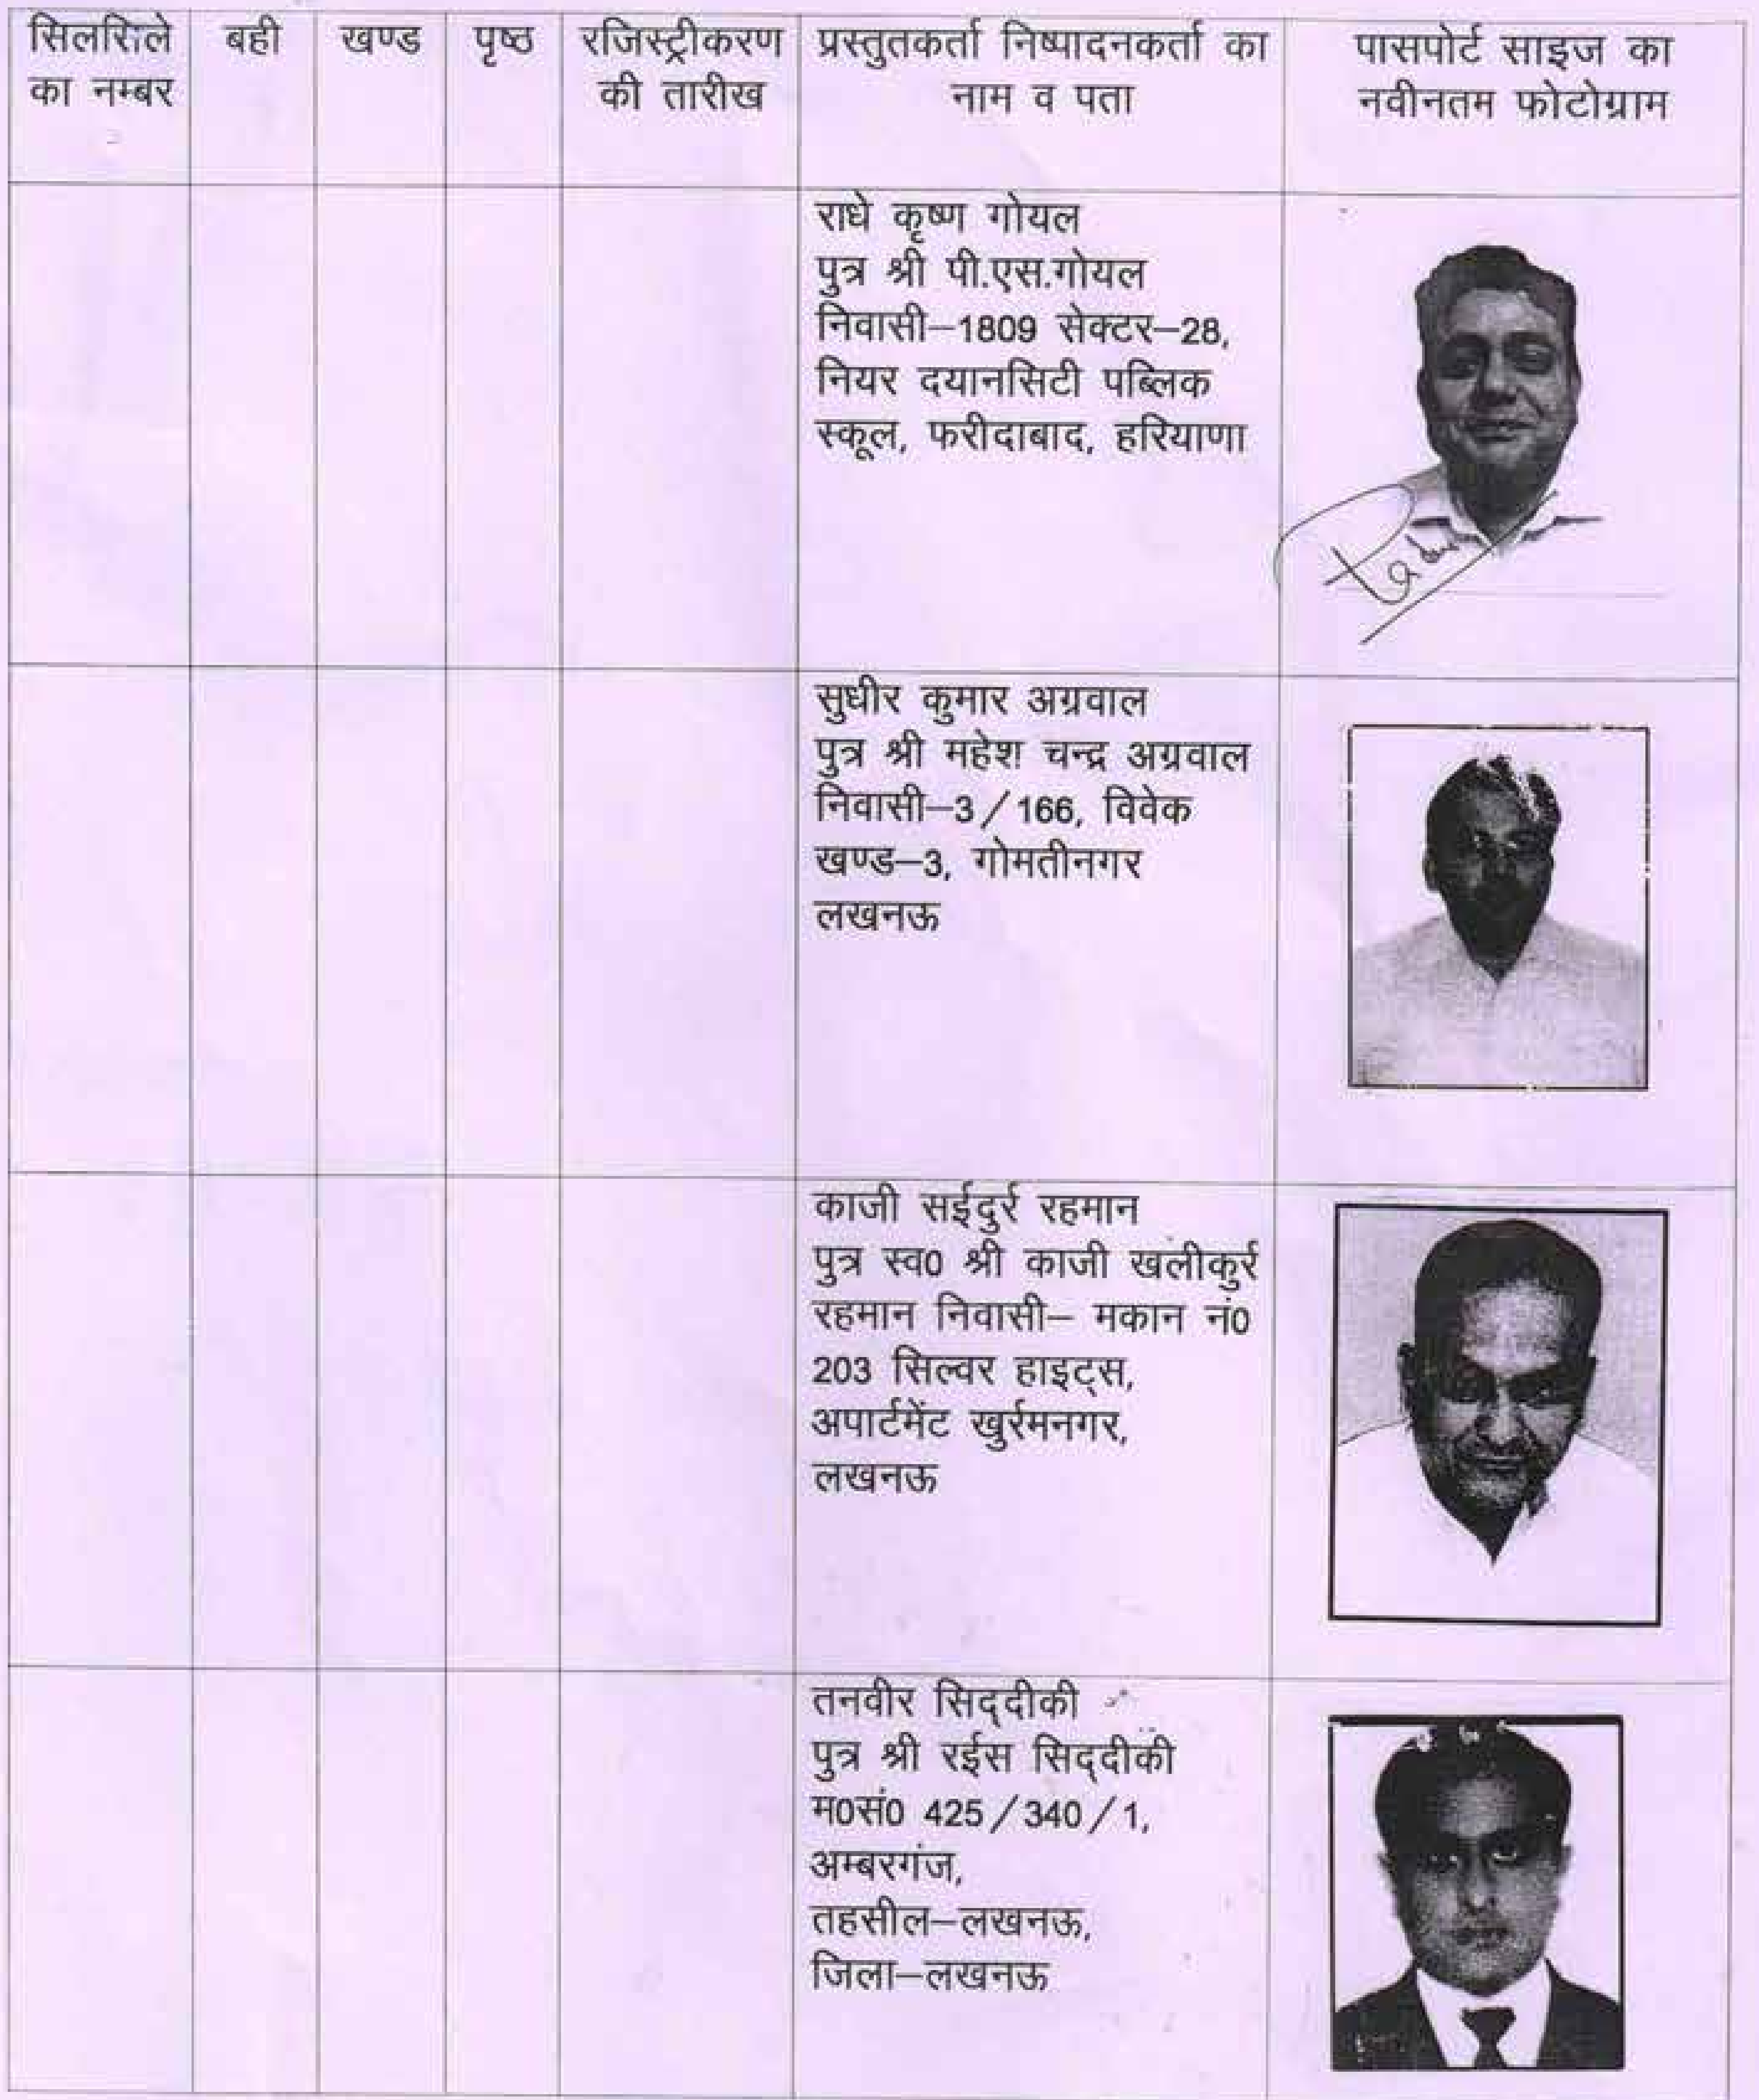 सिलसिले का नम्बर
बही
खण्ड
पृष्ठ
रजिस्ट्रीकरण की तारीख
प्रस्तुतकर्ता निष्पादनकर्ता का नाम व पता
पासपोर्ट साइज का नवीनतम फोटोग्राम
राधे कृष्ण गोयल
पुत्र श्री पी.एस.गोयल
निवासी–1809 सेक्टर–28,
नियर दयानसिटी पब्लिक
स्कूल, फरीदाबाद, हरियाणा
सुधीर कुमार अग्रवाल
पुत्र श्री महेश चन्द्र अग्रवाल
निवासी–3/166, विवेक
खण्ड–3, गोमतीनगर
लखनऊ
काजी सईदुर्र रहमान
पुत्र स्व0 श्री काजी खलीकुर्र
रहमान निवासी– मकान नं0
203 सिल्वर हाइट्स,
अपार्टमेंट खुर्रमनगर,
लखनऊ
तनवीर सिद्दीकी
पुत्र श्री रईस सिद्दीकी
म0सं0 425/340/1,
अम्बरगंज,
तहसील–लखनऊ,
जिला–लखनऊ